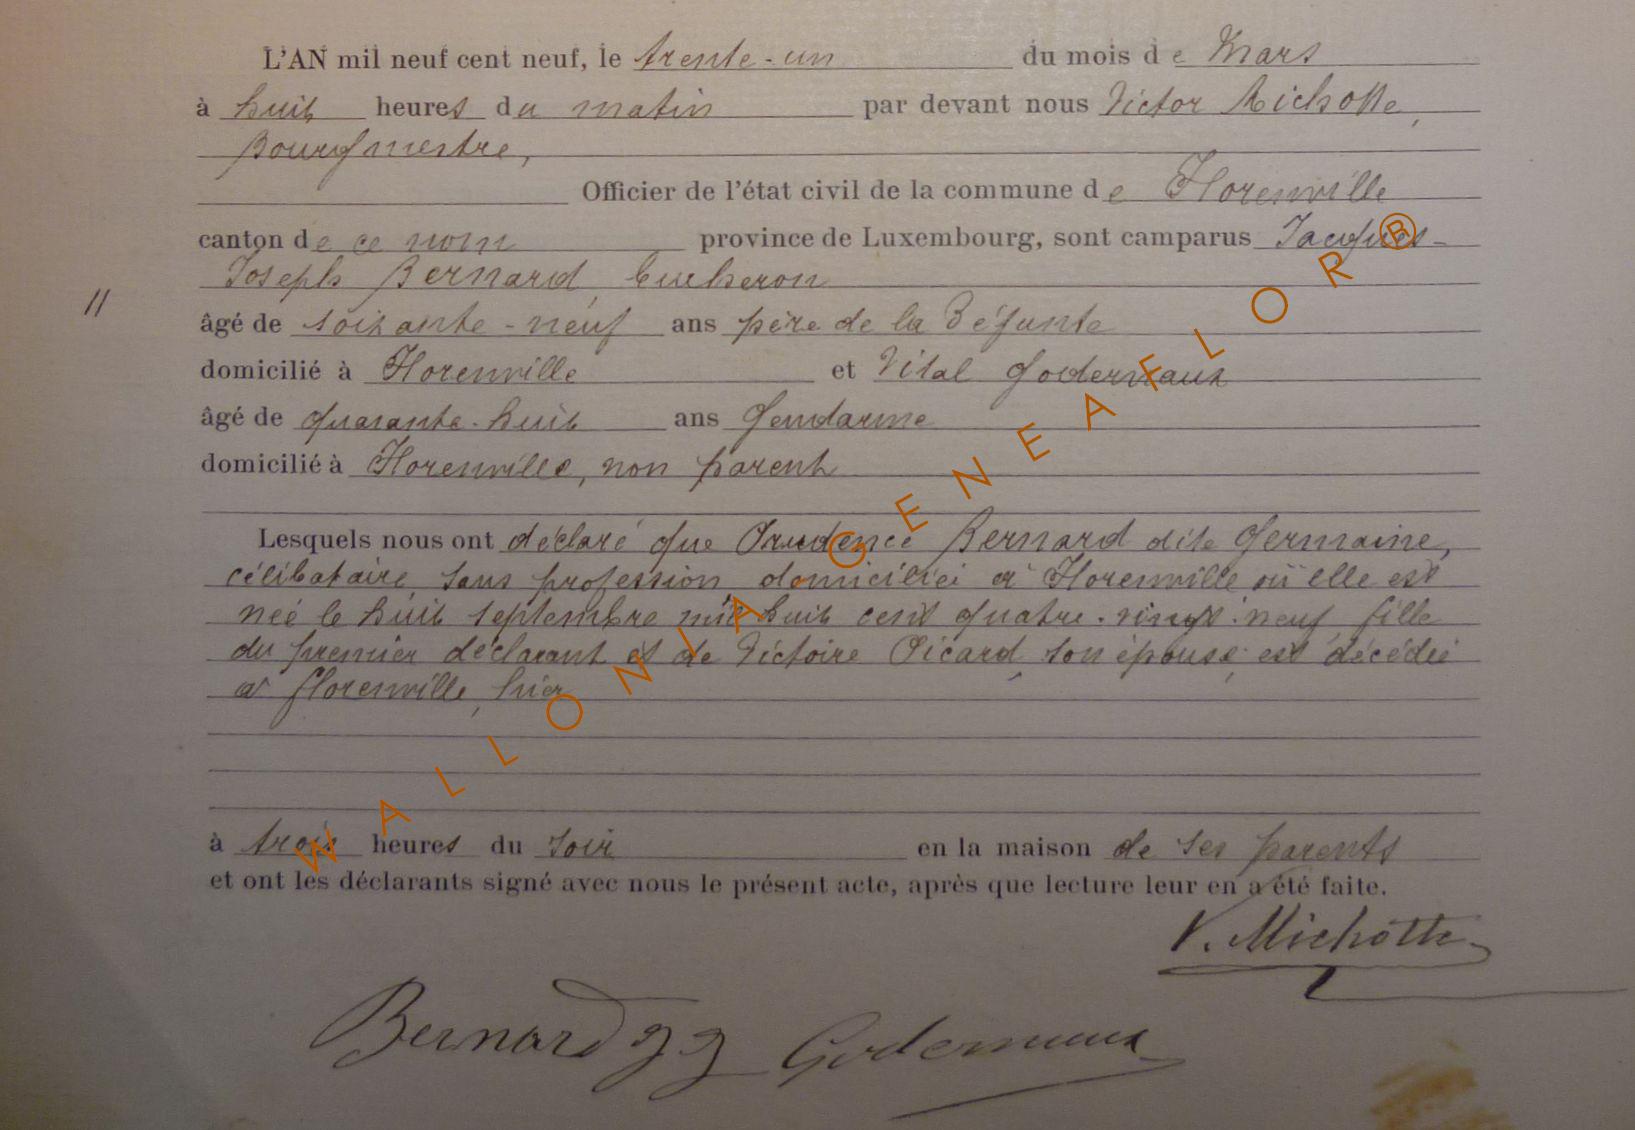 L'AN mil neuf cent neuf, le trente-un du mois de Mars
à huit heures du matin par devant nous Victor Michotte,
Bourgmestre,
Officier de l'état civil de la commune de Florenville
canton de ce nom province de Luxembourg, sont camparus Jacques-
Joseph Bernard, bucheron
11
âgé de soixante-neuf ans père de la défunte
domicilié à Florenville et Vital Godernaux
âgé de quarante-huit ans Gendarme
domicilié à Florenville, non parent
Lesquels nous ont déclaré que Prudence Bernard dite Germaine,
célibataire, sans profession, domiciliée à Florenville où elle est
née le huit septembre mil huit cent quatre-vingt-neuf fille
du premier déclarant et de Victoire Picard, son épouse, est décédée
à florenville, hier
à trois heures du soir en la maison de ses parents
et ont les déclarants signé avec nous le présent acte, après que lecture leur en a été faite.
V. Michotte
Bernard JJ Godernaux
WALLONIA-GENEAFLOR®